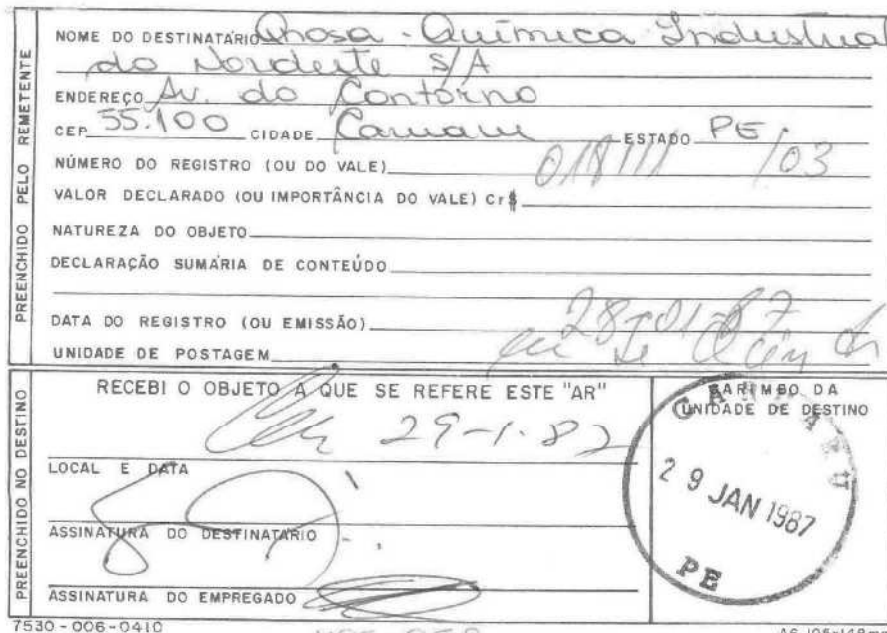 PREENCHIDO PELO REMETENTE
NOME DO DESTINATÁRIO Qnosa - Química Industrial
do Nordeste S/A
ENDEREÇO Av. do Contôrno
CEP 55.100 CIDADE Caruaru ESTADO PE
NÚMERO DO REGISTRO (OU DO VALE) /03
VALOR DECLARADO (OU IMPORTÂNCIA DO VALE) Cr$
NATUREZA DO OBJETO
DECLARAÇÃO SUMÁRIA DE CONTEÚDO
DATA DO REGISTRO (OU EMISSÃO) 28-01-87
UNIDADE DE POSTAGEM
PREENCHIDO NO DESTINO
RECEBI O OBJETO A QUE SE REFERE ESTE "AR"
29-1-87
LOCAL E DATA
ASSINATURA DO DESTINATÁRIO
ASSINATURA DO EMPREGADO
CARIMBO DA
UNIDADE DE DESTINO
CARUARU
29 JAN 1987
PE
7530-006-0410
A6 105x148mm